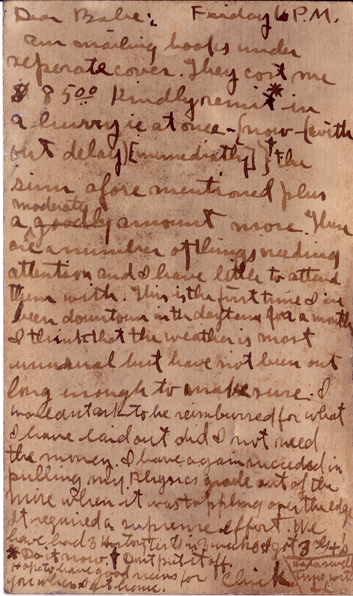 Dear Babe; Friday 6 P.M.
Am mailing books under
seperate cover. They cost me
$ 85.00 Kindly remit* in
a hurry ie at once - {now - (with
out delay) [immediately] }† the
sum afore mentioned plus
moderately
a goodly amount more. There
are a number of things needing
attention and I have little to attend
them with. This is the first time I've
been downtown in the daytime for a month
I think that the weather is most
unusual but have not been out
long enough to make sure. I
wouldn't ask to be reimbursed for what
I have laid out did I not need
the money. I have again succeeded in
pulling my Physics grade out of the
mire when it was toppling over the edge
It required a supreme effort. We
have had 3 History tests in 3 weeks & got 3
* Do it now. † Don't put it off.
Hope to have good news for
you when I get home. Chick